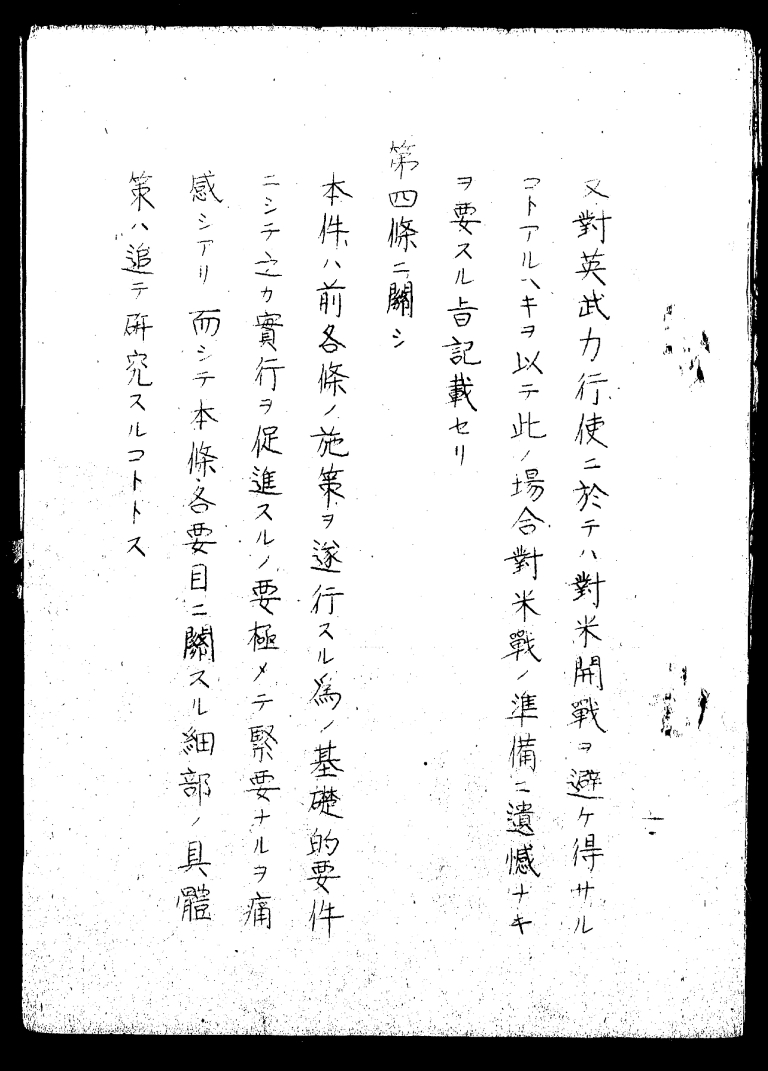 又對英武力行使ニ於テハ對米開戰ヲ避ケ得サル
コトアルヘキヲ以テ此ノ場合對米戰ノ準備ニ遺憾ナキ
ヲ要スル旨記載セリ
第四條ニ關シ
本件ハ前各條ノ施策ヲ遂行スル爲ノ基礎的要件
ニシテ之カ實行ヲ促進スルノ要極メテ緊要ナルヲ痛
感シアリ而シテ本條各要目ニ關スル細部ノ具體
策ハ追テ研究スルコトトス